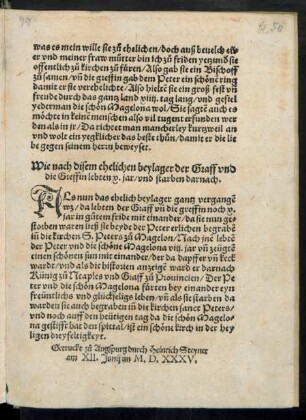 was es mein wille sie zů ehelichen/doch auß beuelch ewer
vnd meiner fraw můtter bin ich zů friden yetzund sie
offentlich zů kirchen zů fůren/Also gab sie ein Bischoff
zů samen/vñ die greffin gab dem Peter ein schöne ring
damit er sie verehelichte/Also hielte sie ein groß fest vñ
freude durch das gantz land viiij. tag lang/vnd gefiel
yederman die schöne Magelona wol/Sie sagtē auch es
möchte in keinē menschen also vil tugent erfunden wer
den als in jr/Da richtet man mancherley kurtzweil an
vnd wolt ein yegklicher das beste thůn/damit er die lie
be gegen seinem herrn beweyset.
Wie nach disem ehelichen beylager der Graff vnd
die Greffin lebten x. jar/vnd starben darnach.
ALs nun das ehelich beylager gantz vergangē
wz/da lebten der Graff vñ die greffin noch x.
jar in gůtem fride mit einander/da sie nun ge
storben waren ließ sie beyde der Peter erlichen begrabē
in die kirchen S. Peters zů Magelon/Nach jnē lebtē
der Peter vnd die schöne Magelona viij. jar vñ zeugtē
einen schönen sun mit einander/der da dapffer vñ keck
ward/vnd als die histori en anzeigt ward er darnach
Künig zů Neaples vnd Graff zů Prouincien/Der Pe
ter vnd die schöne Magelona fürten bey einander eyn
freundtlichs vnd glückseligs leben/vñ als sie starben da
warden sie auch begraben in die kirchen sanct Peters/
vnd noch auff den heütigen tag da die schön Magelo
na gestifft hat den spittal/ist ein schöne kirch in der hey
ligen dreyfeltigkeyt.
Getruckt zů Augspurg durch Heinrich Steyner
am XII. Junij im M. D. XXXV.